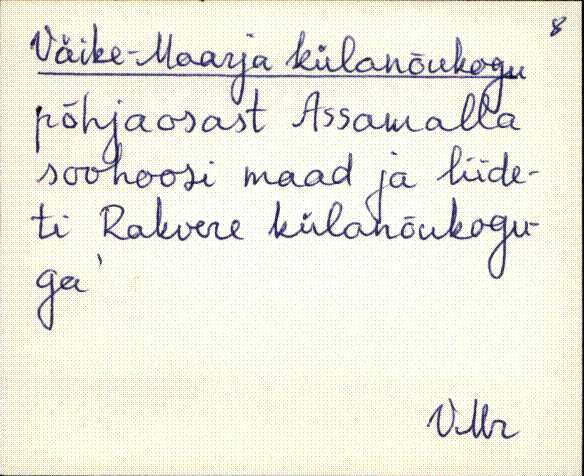 8
Väike-Maarja külanõukogu
põhjaosast Assamalla
soohoosi maad ja liide-
ti Rakvere külanõukogu-
ga'
VMr